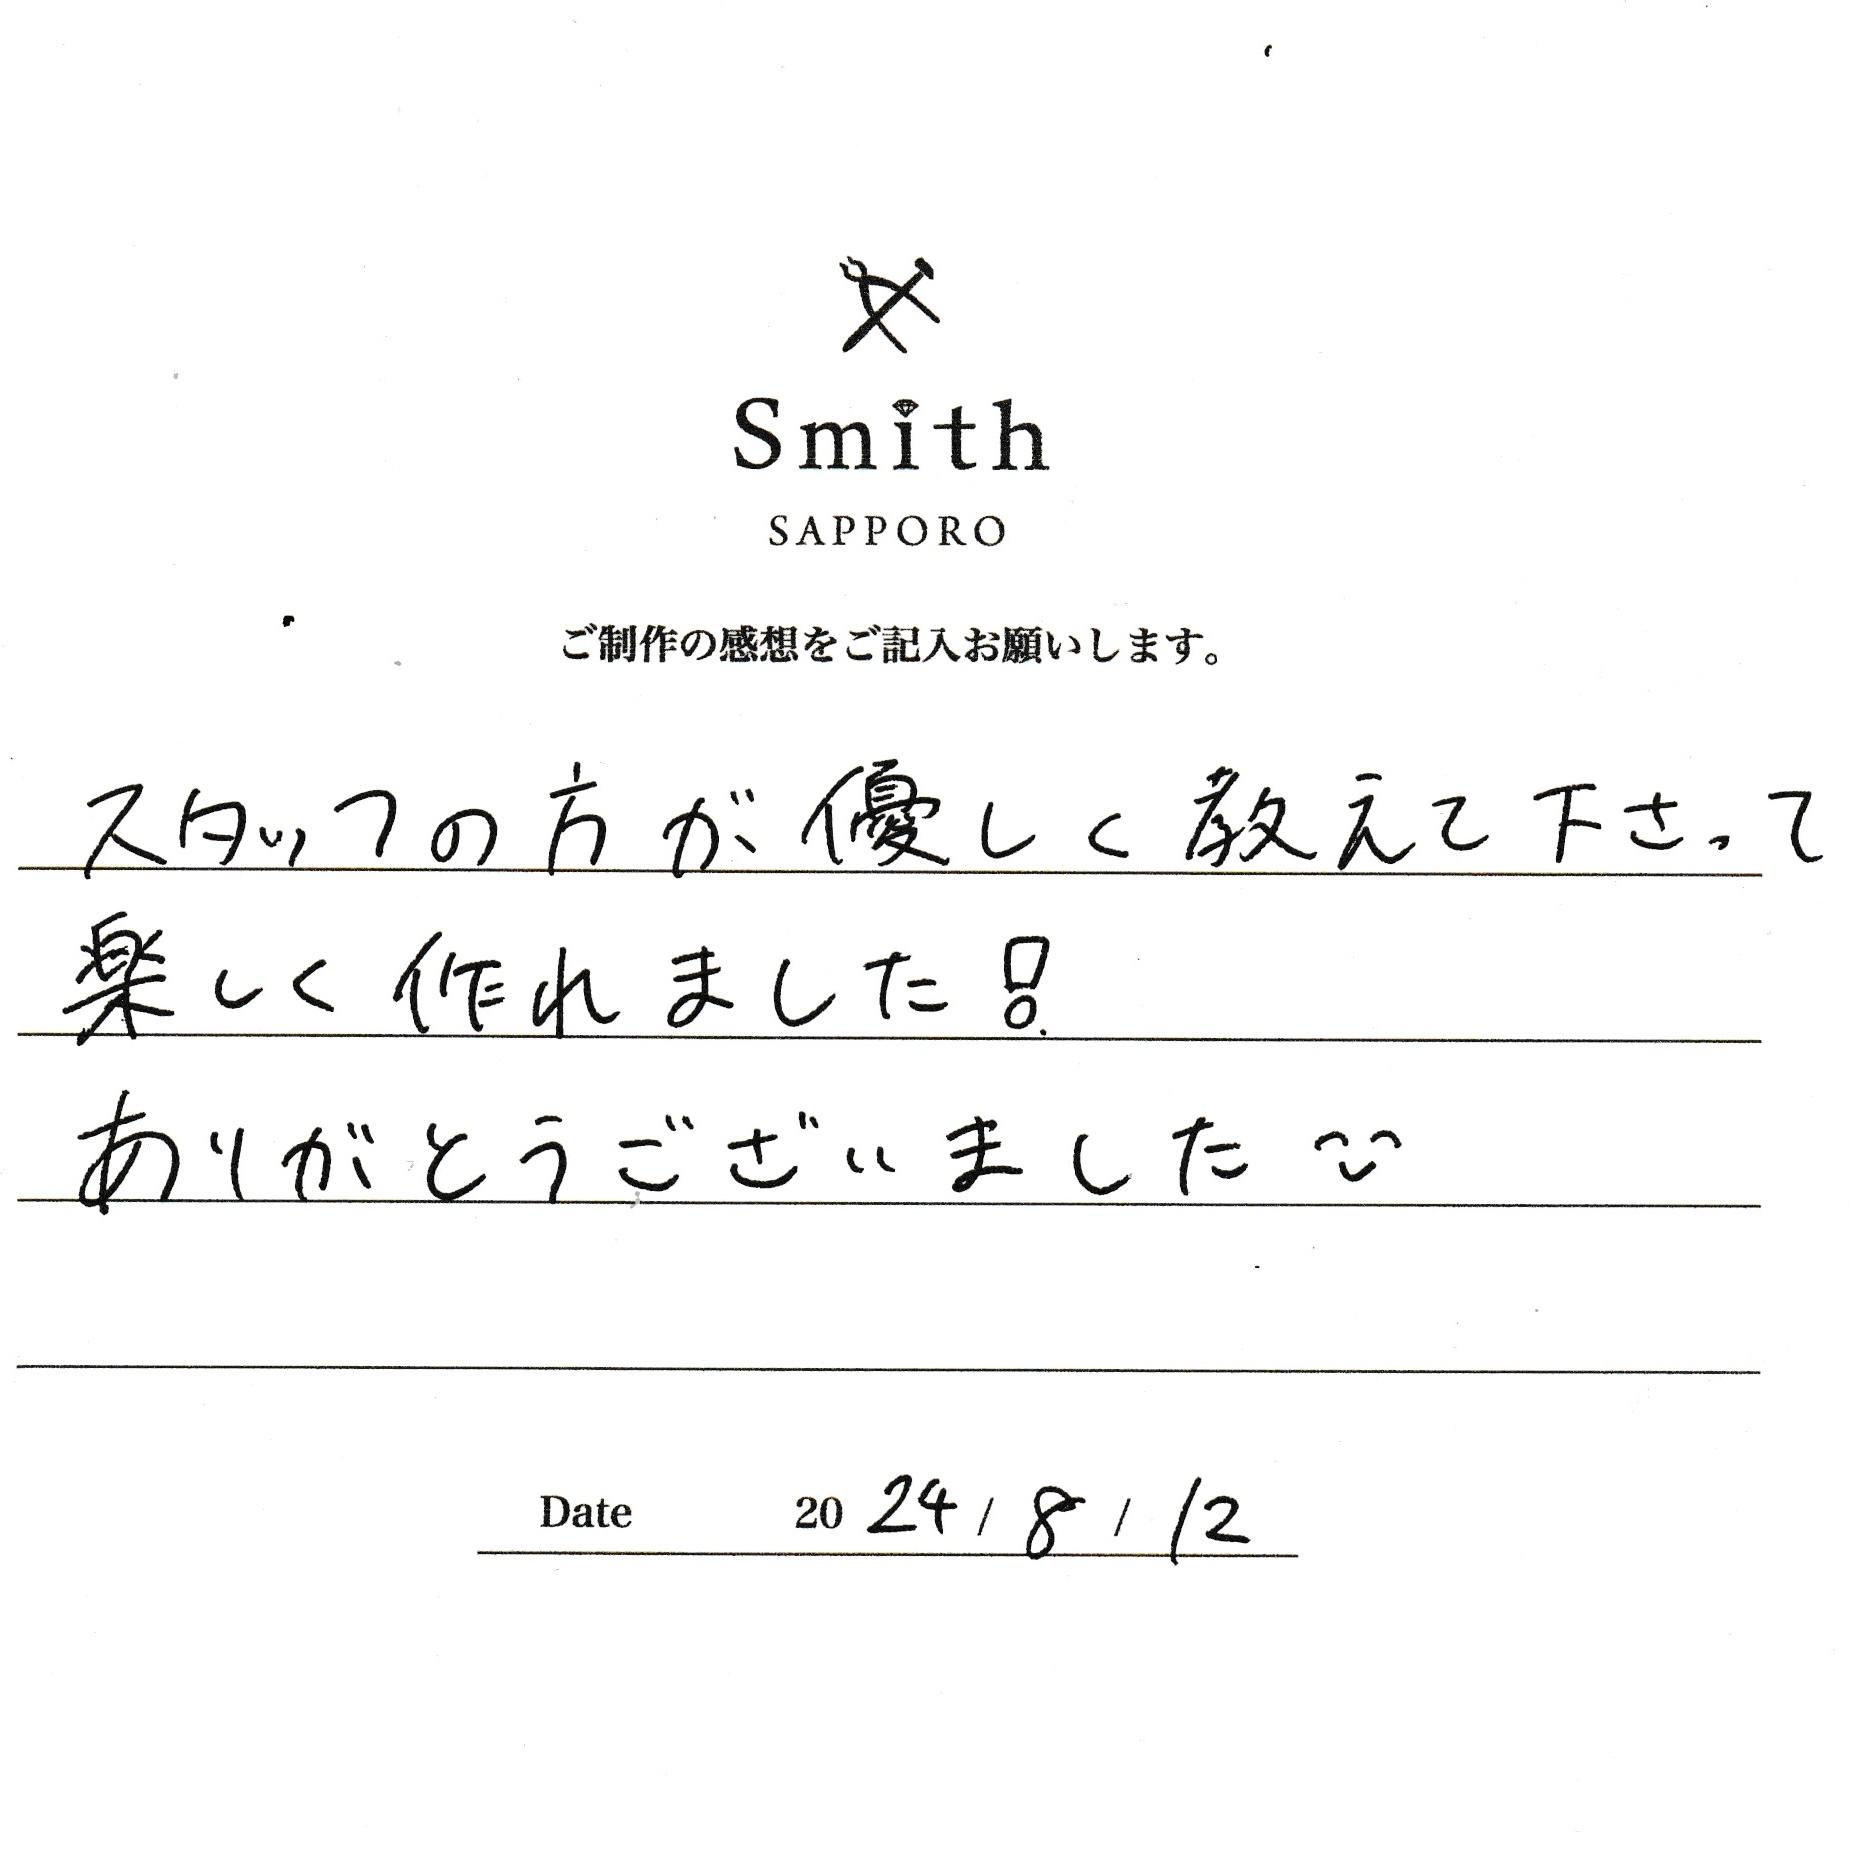 Smith
SAPPORO
ご制作の感想をご記入お願いします。
スタッフの方が優しく教えて下さって
楽しく作れました!
ありがとうございました
Date 2024/8/12